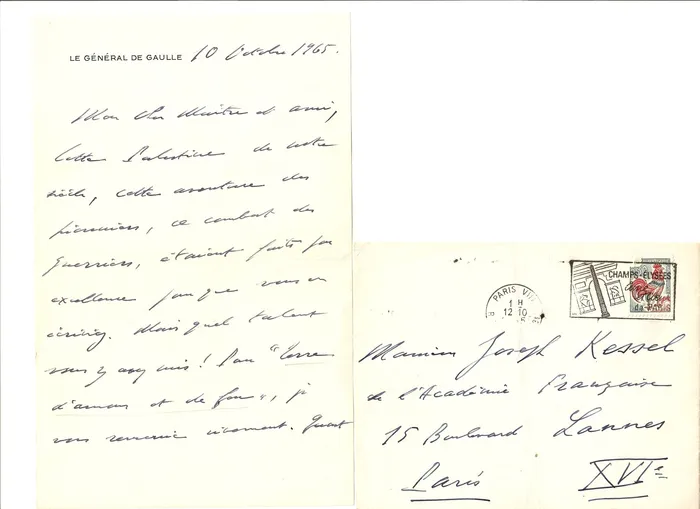 LE GÉNÉRAL DE GAULLE 10 Octobre 1965.
Mon cher Maître et ami,
Cette Palestine de notre
siècle, cette aventure des
pionniers, ce combat des
guerriers, étaient faits par
excellence pour que vous en
écriviez. Mais quel talent
vous y avez mis! Pour "Terre
d'amour et de feu", je
vous remercie vivement. Quant
PARIS VIII
1 H
12 10
CHAMPS-ÉLYSÉES
de PARIS
Monsieur Joseph Kessel
de l'Académie Française
15 Boulevard Lannes
Paris XVIe